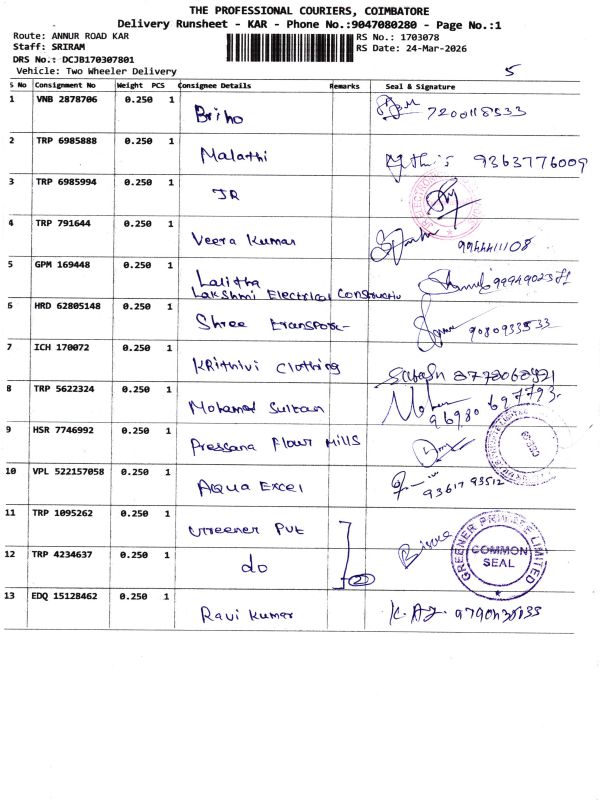 THE PROFESSIONAL COURIERS, COIMBATORE
Delivery Runsheet - KAR - Phone No.:9047080280 - Page No.:1
Route: ANNUR ROAD KAR RS No.: 1703078
Staff: SRIRAM RS Date: 24-Mar-2026
DRS No.: DCJB170307801
Vehicle: Two Wheeler Delivery 5
S No Consignment No Weight PCS Consignee Details Remarks Seal & Signature
1 VNB 2878706 0.250 1 Briho
2 TRP 6985888 0.250 1 Malathi 9363776009
3 TRP 6985994 0.250 1 JR
4 TRP 791644 0.250 1 Veera Kumar 9944411108
5 GPM 169448 0.250 1 Lalitha
Lakshmi Electrical Constructiv
6 HRD 62805148 0.250 1 Shree transport 9080933533
7 ICH 170072 0.250 1 KRithivi clothing
8 TRP 5622324 0.250 1 Mohamed Sultan 96980 697793
9 HSR 7746992 0.250 1 Prassana Flour Mills
10 VPL 522157058 0.250 1 AQua Excel 93617 93512
11 TRP 1095262 0.250 1 Greener Pvt
12 TRP 4234637 0.250 1 do 2
GREENER PRIVATE LIMITED
COMMON
SEAL
13 EDQ 15128462 0.250 1 Ravi Kumar